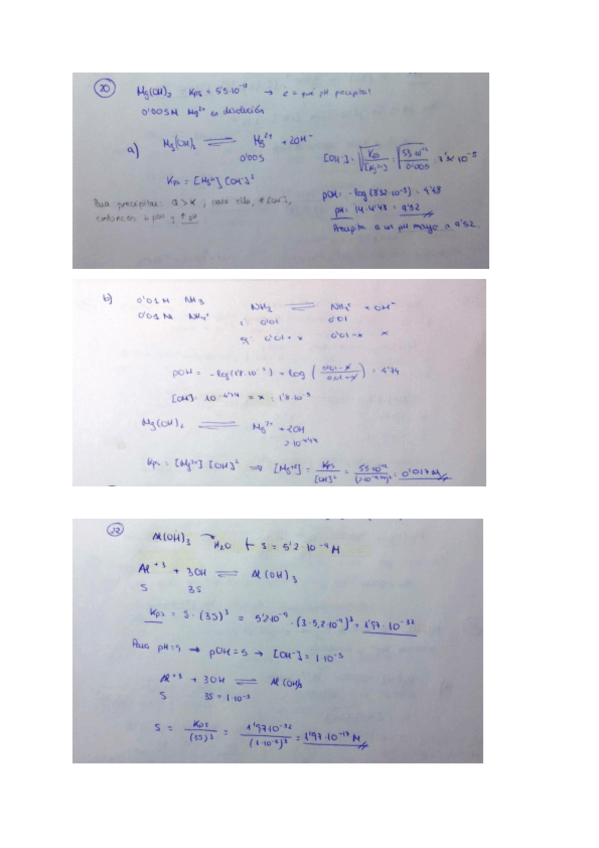 20
Mg(OH)₂ Kps = 5'5·10⁻¹² → ¿ a qué pH precipita?
0'005M Mg²⁺ en disolución
a) Mg(OH)₂ ⇌ Mg²⁺ + 2OH⁻
0'005
Kps = [Mg²⁺] [OH⁻]²
Para precipitar: Q > K ; para ello, ↑[OH⁻],
entonces ↓ pOH y ↑ pH
pOH = -log (3'32·10⁻⁵) = 4'48
pH = 14 - 4'48 = 9'52
Precipita a un pH mayor a 9'52.
b) 0'01 M NH₃
0'01 M NH₄⁺
NH₃ ⇌ NH₄⁺ + OH⁻
0'01 0'01
0'01 + x 0'01 - x x
pOH = -log(1'8·10⁻⁵) + log (0'01-x / 0'01+x) = 4'74
[OH⁻] = 10⁻⁴'⁷⁴ = x = 1'8·10⁻⁵
Mg(OH)₂ ⇌ Mg²⁺ + 2OH
Kps = [Mg²⁺] [OH]² ⇒ [Mg⁺²] = Kps / [OH]² = = 0'017 M
22
Al(OH)₃ H₂O S = 5'2·10⁻⁹ M
Al⁺³ + 3OH ⇌ Al(OH)₃
S 3S
Kps = S · (3S)³ = 5'2·10⁻⁹ · (3·5,2·10⁻⁹)³ = 1'97·10⁻³²
Para pH=9 → pOH = 5 → [OH⁻] = 1·10⁻⁵
Al⁺³ + 3OH ⇌ Al(OH)₃
S 3S = 1·10⁻⁵
S = Kps / (3S)³ = 1'97·10⁻³² / (1·10⁻⁵)³ = 1'97·10⁻¹⁷ M